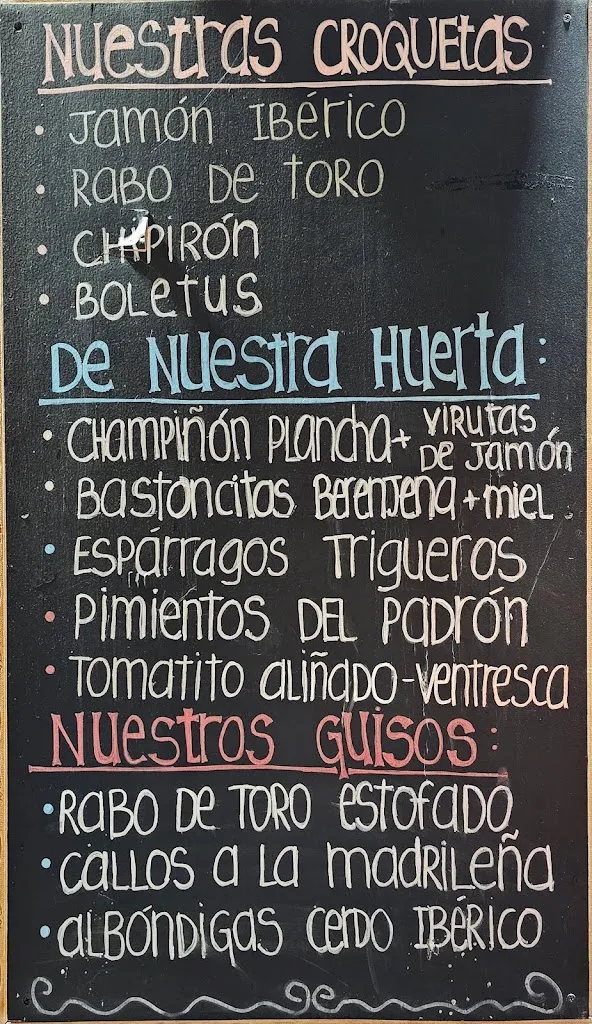 Nuestras CROQUETAS
• Jamón Ibérico
• RABO DE TORO
• CHIPIRÓN
• BOLETUS
DE NUESTRA HUERTA:
• CHAMPIÑÓN PLANCHA + VIRUTAS DE JAMÓN
• BASTONCITOS BERENJENA + MIEL
• ESPÁRRAGOS TRIGUEROS
• PIMIENTOS DEL PADRÓN
• TOMATITO ALIÑADO - VENTRESCA
NUESTROS GUISOS:
• RABO DE TORO ESTOFADO
• CALLOS A LA MADRILEÑA
• ALBÓNDIGAS CERDO IBÉRICO